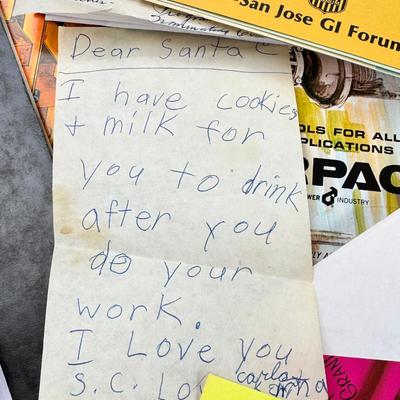 San Jose GI Forum
Dear Santa C
I have cookies
+ milk for
you to drink
after you
do your
work.
I Love you
S.C. Lo
OLS FOR ALL
PPLICATIONS
RPAC
WER INDUSTRY
GRAN